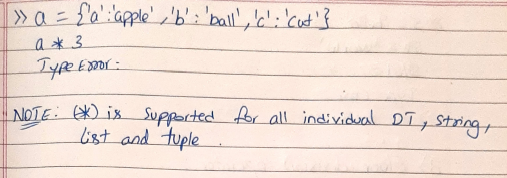 >> a = {'a':'apple','b':'ball','c':'cat'}
a * 3
Type Error:
NOTE: (*) is supported for all individual DT, string,
list and tuple.